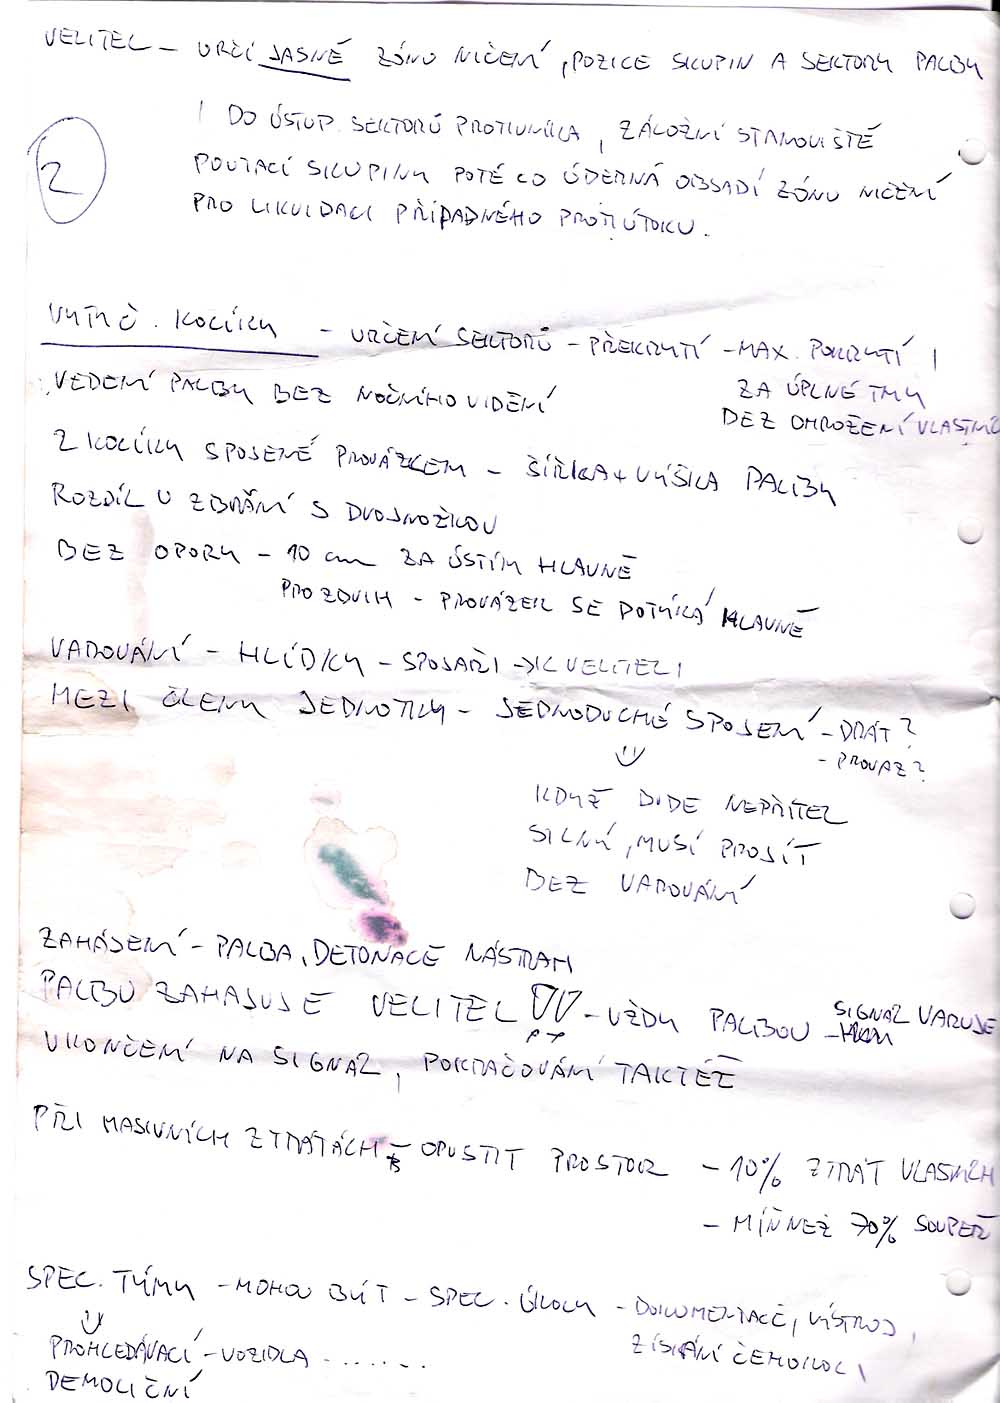 VELITEL – URČÍ JASNĚ ZÓNU NIČENÍ, POZICE SKUPIN A SEKTORY PALBY
I DO ÚSTUP. SEKTORŮ PROTIVNÍKA, ZÁLOŽNÍ STANOVIŠTĚ
2
POUTACÍ SKUPINY POTÉ CO ÚDERNÁ OBSADÍ ZÓNU NIČENÍ
PRO LIKVIDACI PŘÍPADNÉHO PROTIÚTOKU.
VYTYČ. KOLÍKY – URČENÍ SEKTORŮ – PŘEKRYTÍ – MAX. POKRYTÍ I
VEDENÍ PALBY BEZ NOČNÍHO VIDĚNÍ
ZA ÚPLNÉ TMY
BEZ OHROŽENÍ VLASTNÍC
2 KOLÍKY SPOJENÉ PROVÁZKEM – ŠÍŘKA + VÝŠKA PALBY
ROZDÍL U ZBRANÍ S DVOJNOŽKOU
BEZ OPORY – 10 cm ZA ÚSTÍM HLAVNĚ
PRO ZDVIH – PROVÁZEK SE DOTÝKÁ HLAVNĚ
VAROVÁNÍ – HLÍDKY – SPOJAŘI → K VELITELI
MEZI ČLENY JEDNOTKY – JEDNODUCHÉ SPOJENÍ – DRÁT?
– PROVAZ?
KDYŽ BUDE NEPŘÍTEL
SILNÝ, MUSÍ PROJÍT
BEZ VAROVÁNÍ
ZAHÁJENÍ – PALBA, DETONACE NÁSTRAH
PALBU ZAHAJUJE VELITEL – VŽDY PALBOU – SIGNÁL VARUJE
UKONČENÍ NA SIGNÁL, POKRAČOVÁNÍ TAKTÉŽ
PŘI MASIVNÍCH ZTRÁTÁCH – OPUSTIT PROSTOR – 10% ZTRÁT VLASTNÍCH
– MÍŇ NEŽ 70% SOUPEŘ
SPEC. TÝMY – MOHOU BÝT – SPEC. ÚKOLY – DOKUMENTACE, VÝSTROJ,
ZÍSKÁNÍ ČEHOKOLI
PROHLEDÁVACÍ – VOZIDLA .......
DEMOLIČNÍ